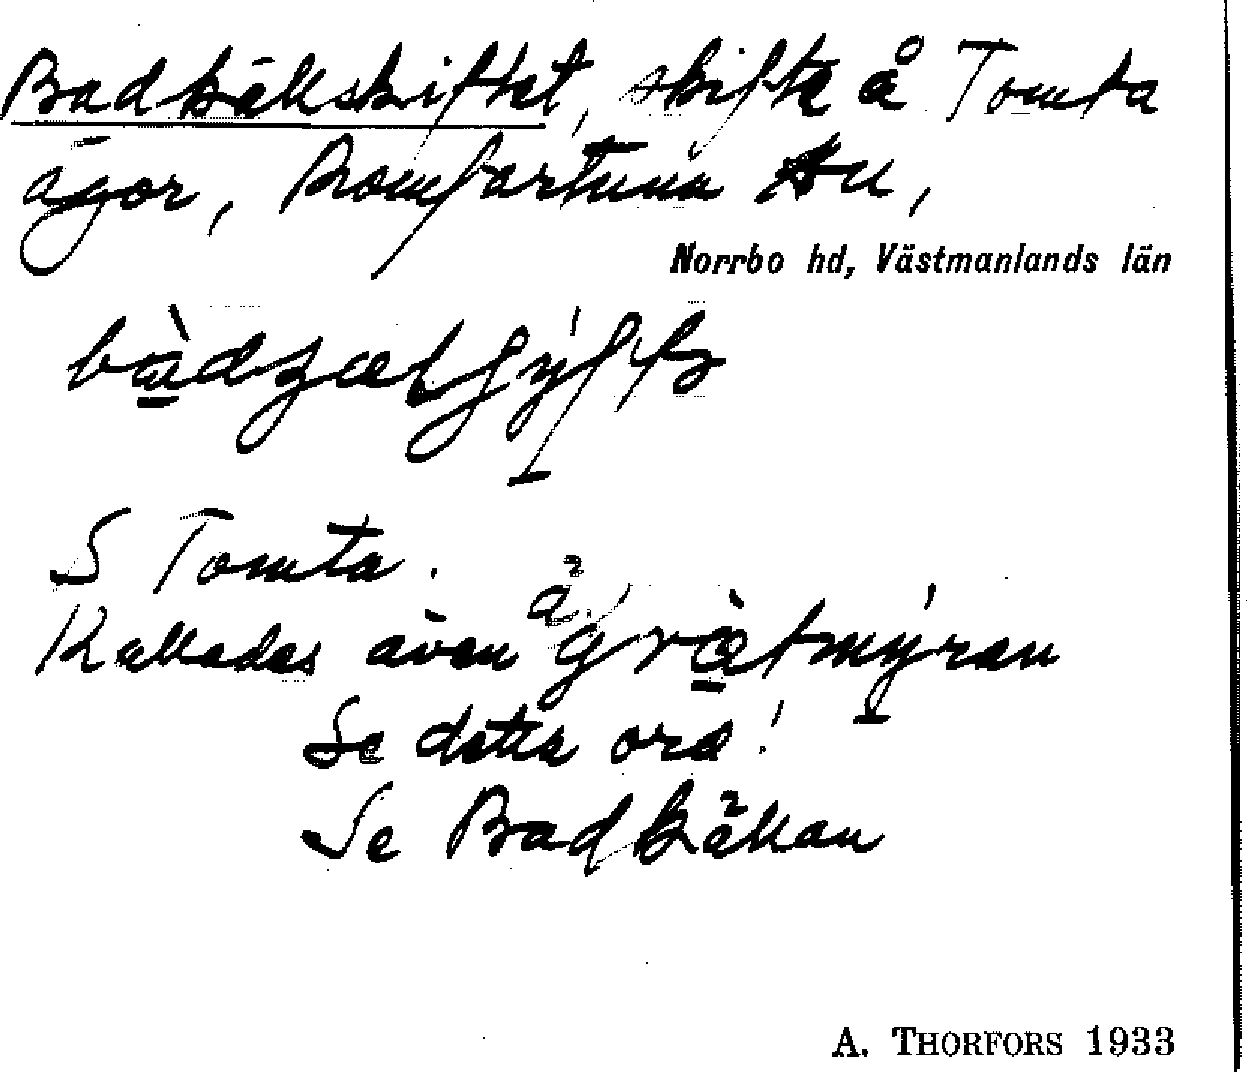 Badkällskiftet, skifte å Tomta
ägor, Romfartuna sn,
Norrbo hd, Västmanlands län
S Tomta.
Kallades även
Se detta ord!
Se Badkällan
A. THORFORS 1933